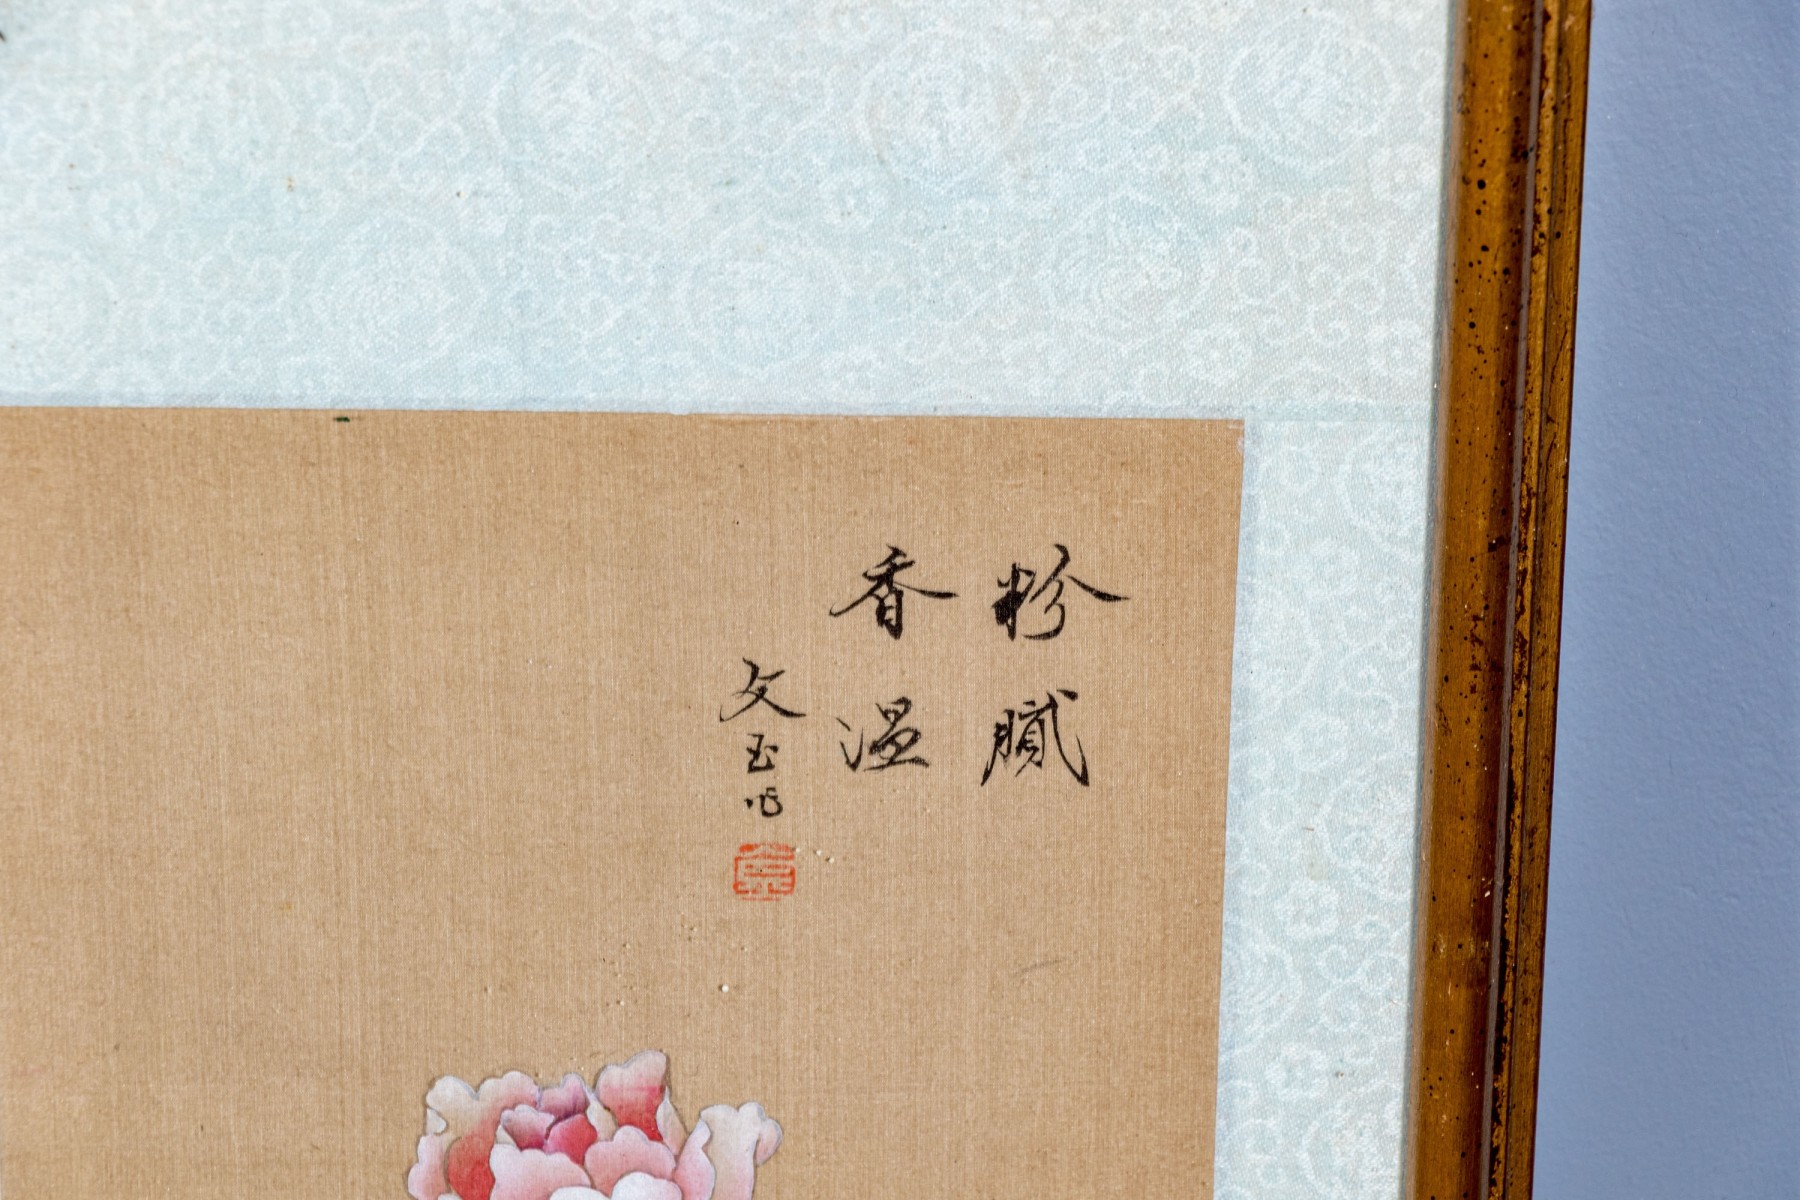 粉膩
香温
文玉作